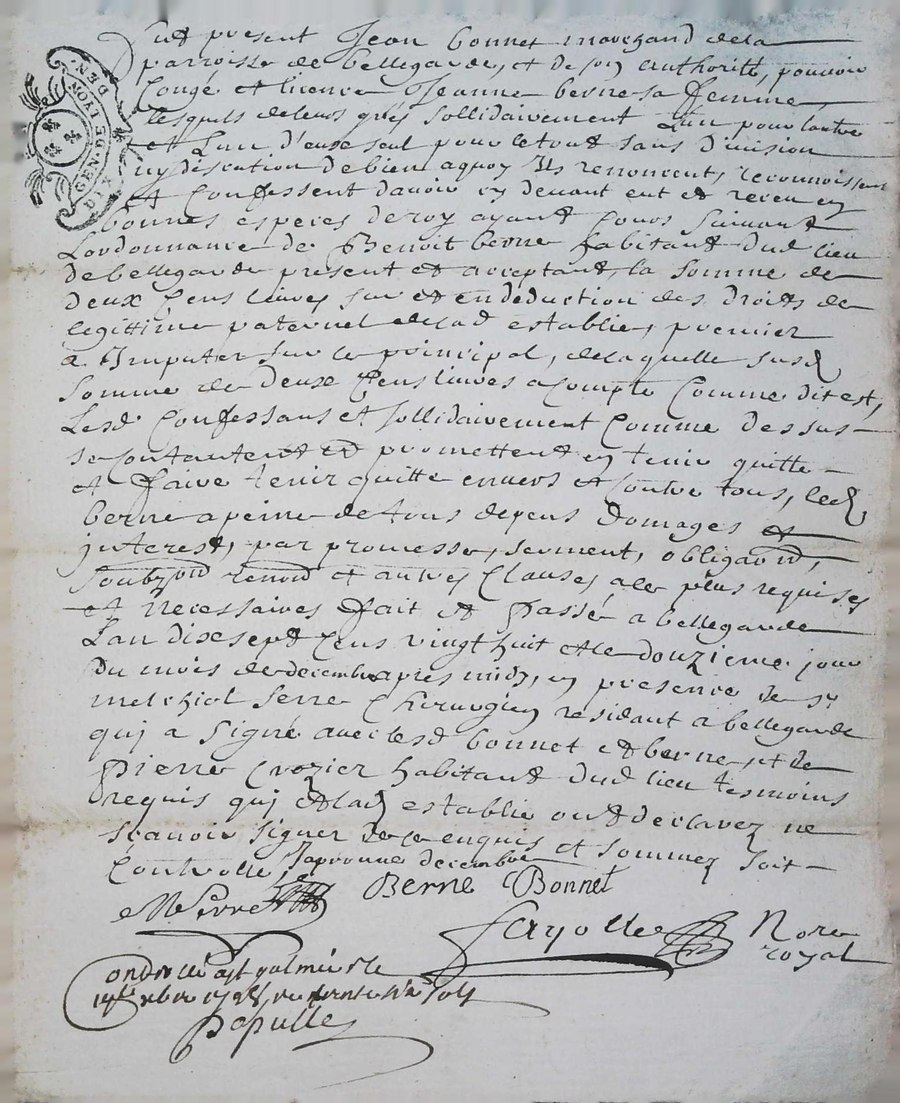 GEN. DE LYON. DEN.
Fut present Jean bonnet marchand dela
parroisse de bellegarde, et de son authorité, pouvoir
Congé et licence Jeanne berne sa femme,
lesquels de leurs grés sollidairement L'un pour lautre
et L'un d'eux seul pour le tout sans division
ny discution de bien aquoy Ils renoncent, reconnoissent
et Confessent davoir cy devant eut et receu en
bonnes especes de roy ayant Cours suivant
Lordonnance de Benoit berne habitant dud lieu
de bellegarde present et acceptant, la somme de
deux Cens livres sur et en deduction des droits de
legittime paternel delad establie, premier
a Imputer sur le principal, de laquelle susd
somme de deux Cens livres acompte Comme dit est,
Lesd Confessans et sollidairement Comme dessus
se contantent et promettent en tenir quitte
et faire tenir quitte envers et contre tous, led
berne a peine de tous depens domages et
interest, par promesse, serment, obligaõn,
soubzõn renõn et autres Clauses, a le plus requises
et necessaires fait et Passé a bellegarde
Lan dix sept Cens vingt huit et le douzieme jour
du mois de decembre apres midy, en presence de sr
melchiol serre Chirurgien residant a bellegarde
qui a signé avec lesd bonnet et berne, et de
Pierre Crozier habitant dud lieu tesmoins
requis qui et lad establie ont declarez ne
scavoir signer de ce enquis et sommez soit
Controllé, Japrouve decembre
M Serre Berne Bonnet
Fayolle Nore
royal
Controllé a st galmier le
14e xbre 1728, sols
Papulle